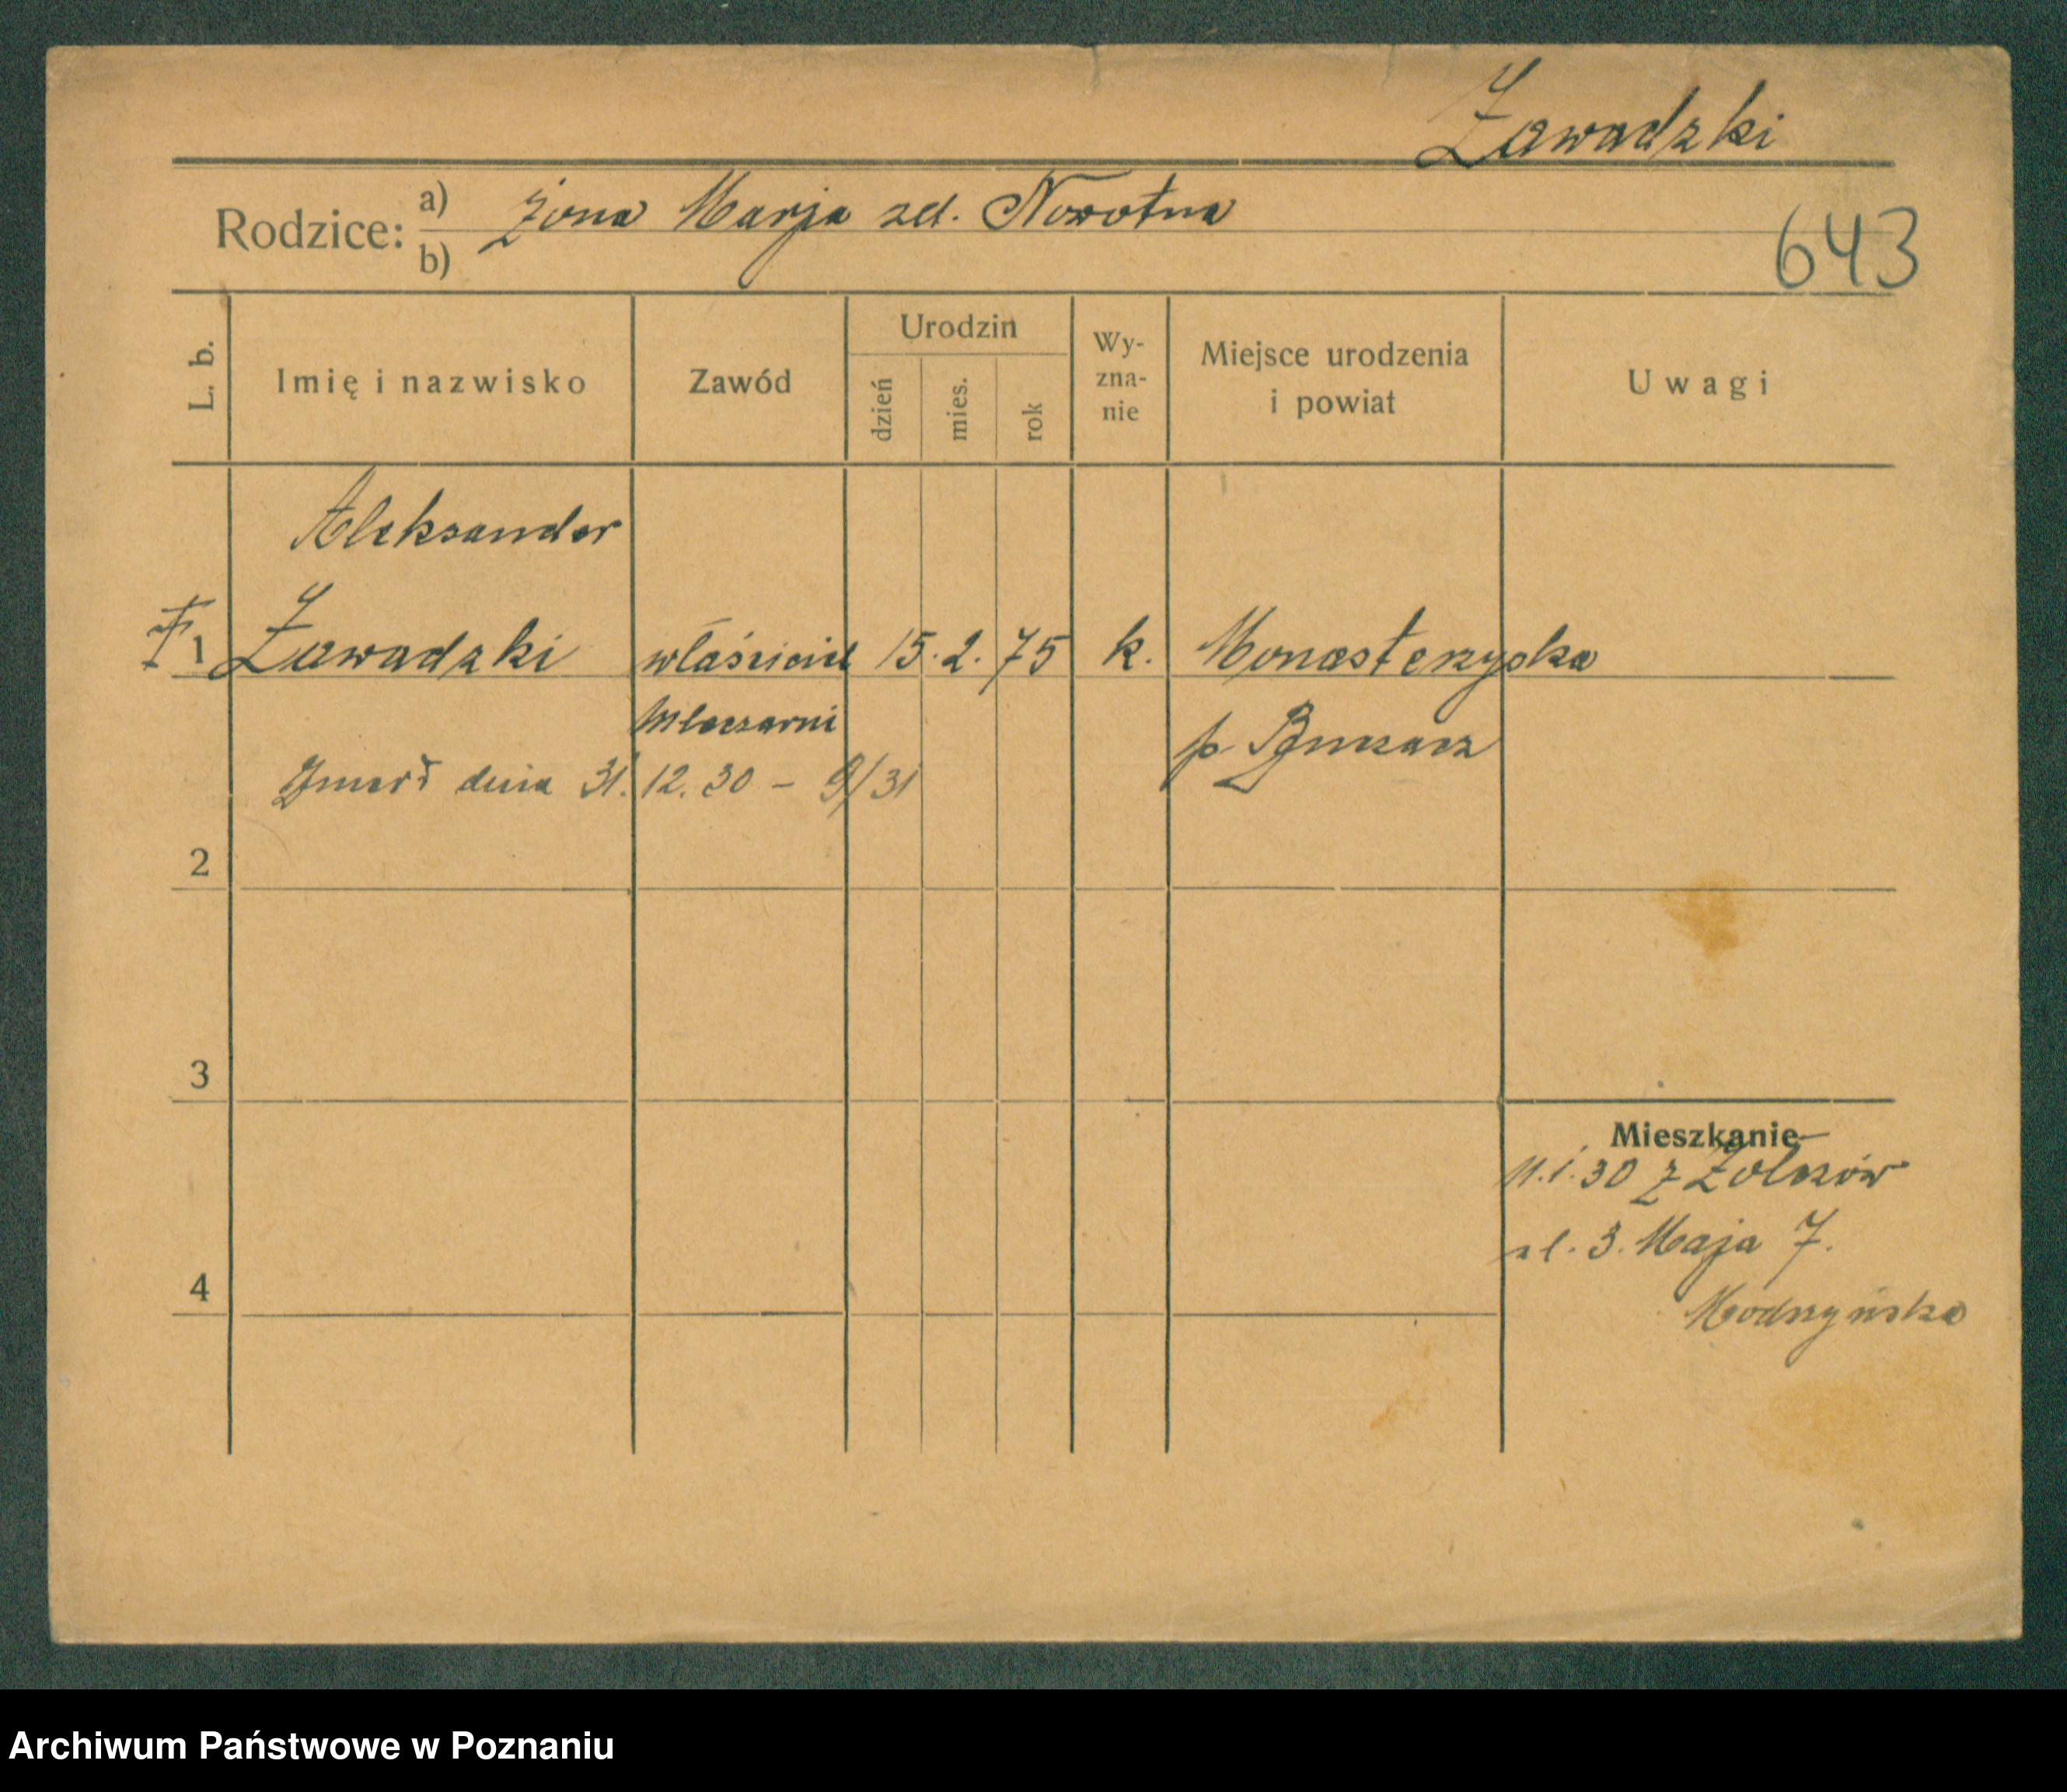 Zawadzki
Rodzice: a) żona Marja zd. Nowotna
b)
643
L. b.
Imię i nazwisko
Zawód
Urodzin
dzień
mies.
rok
Wy-
zna-
nie
Miejsce urodzenia
i powiat
Uwagi
Aleksander
1 Zawadzki właściciel 15. 2. 75 k. Monasterzyska
Mleczarni
p. Buczacz
Zmarł dnia 31. 12. 30 – 9/31
2
3
Mieszkanie
11.1.30 z
ul. 3. Maja 7.
4
Modrzyńska
Archiwum Państwowe w Poznaniu